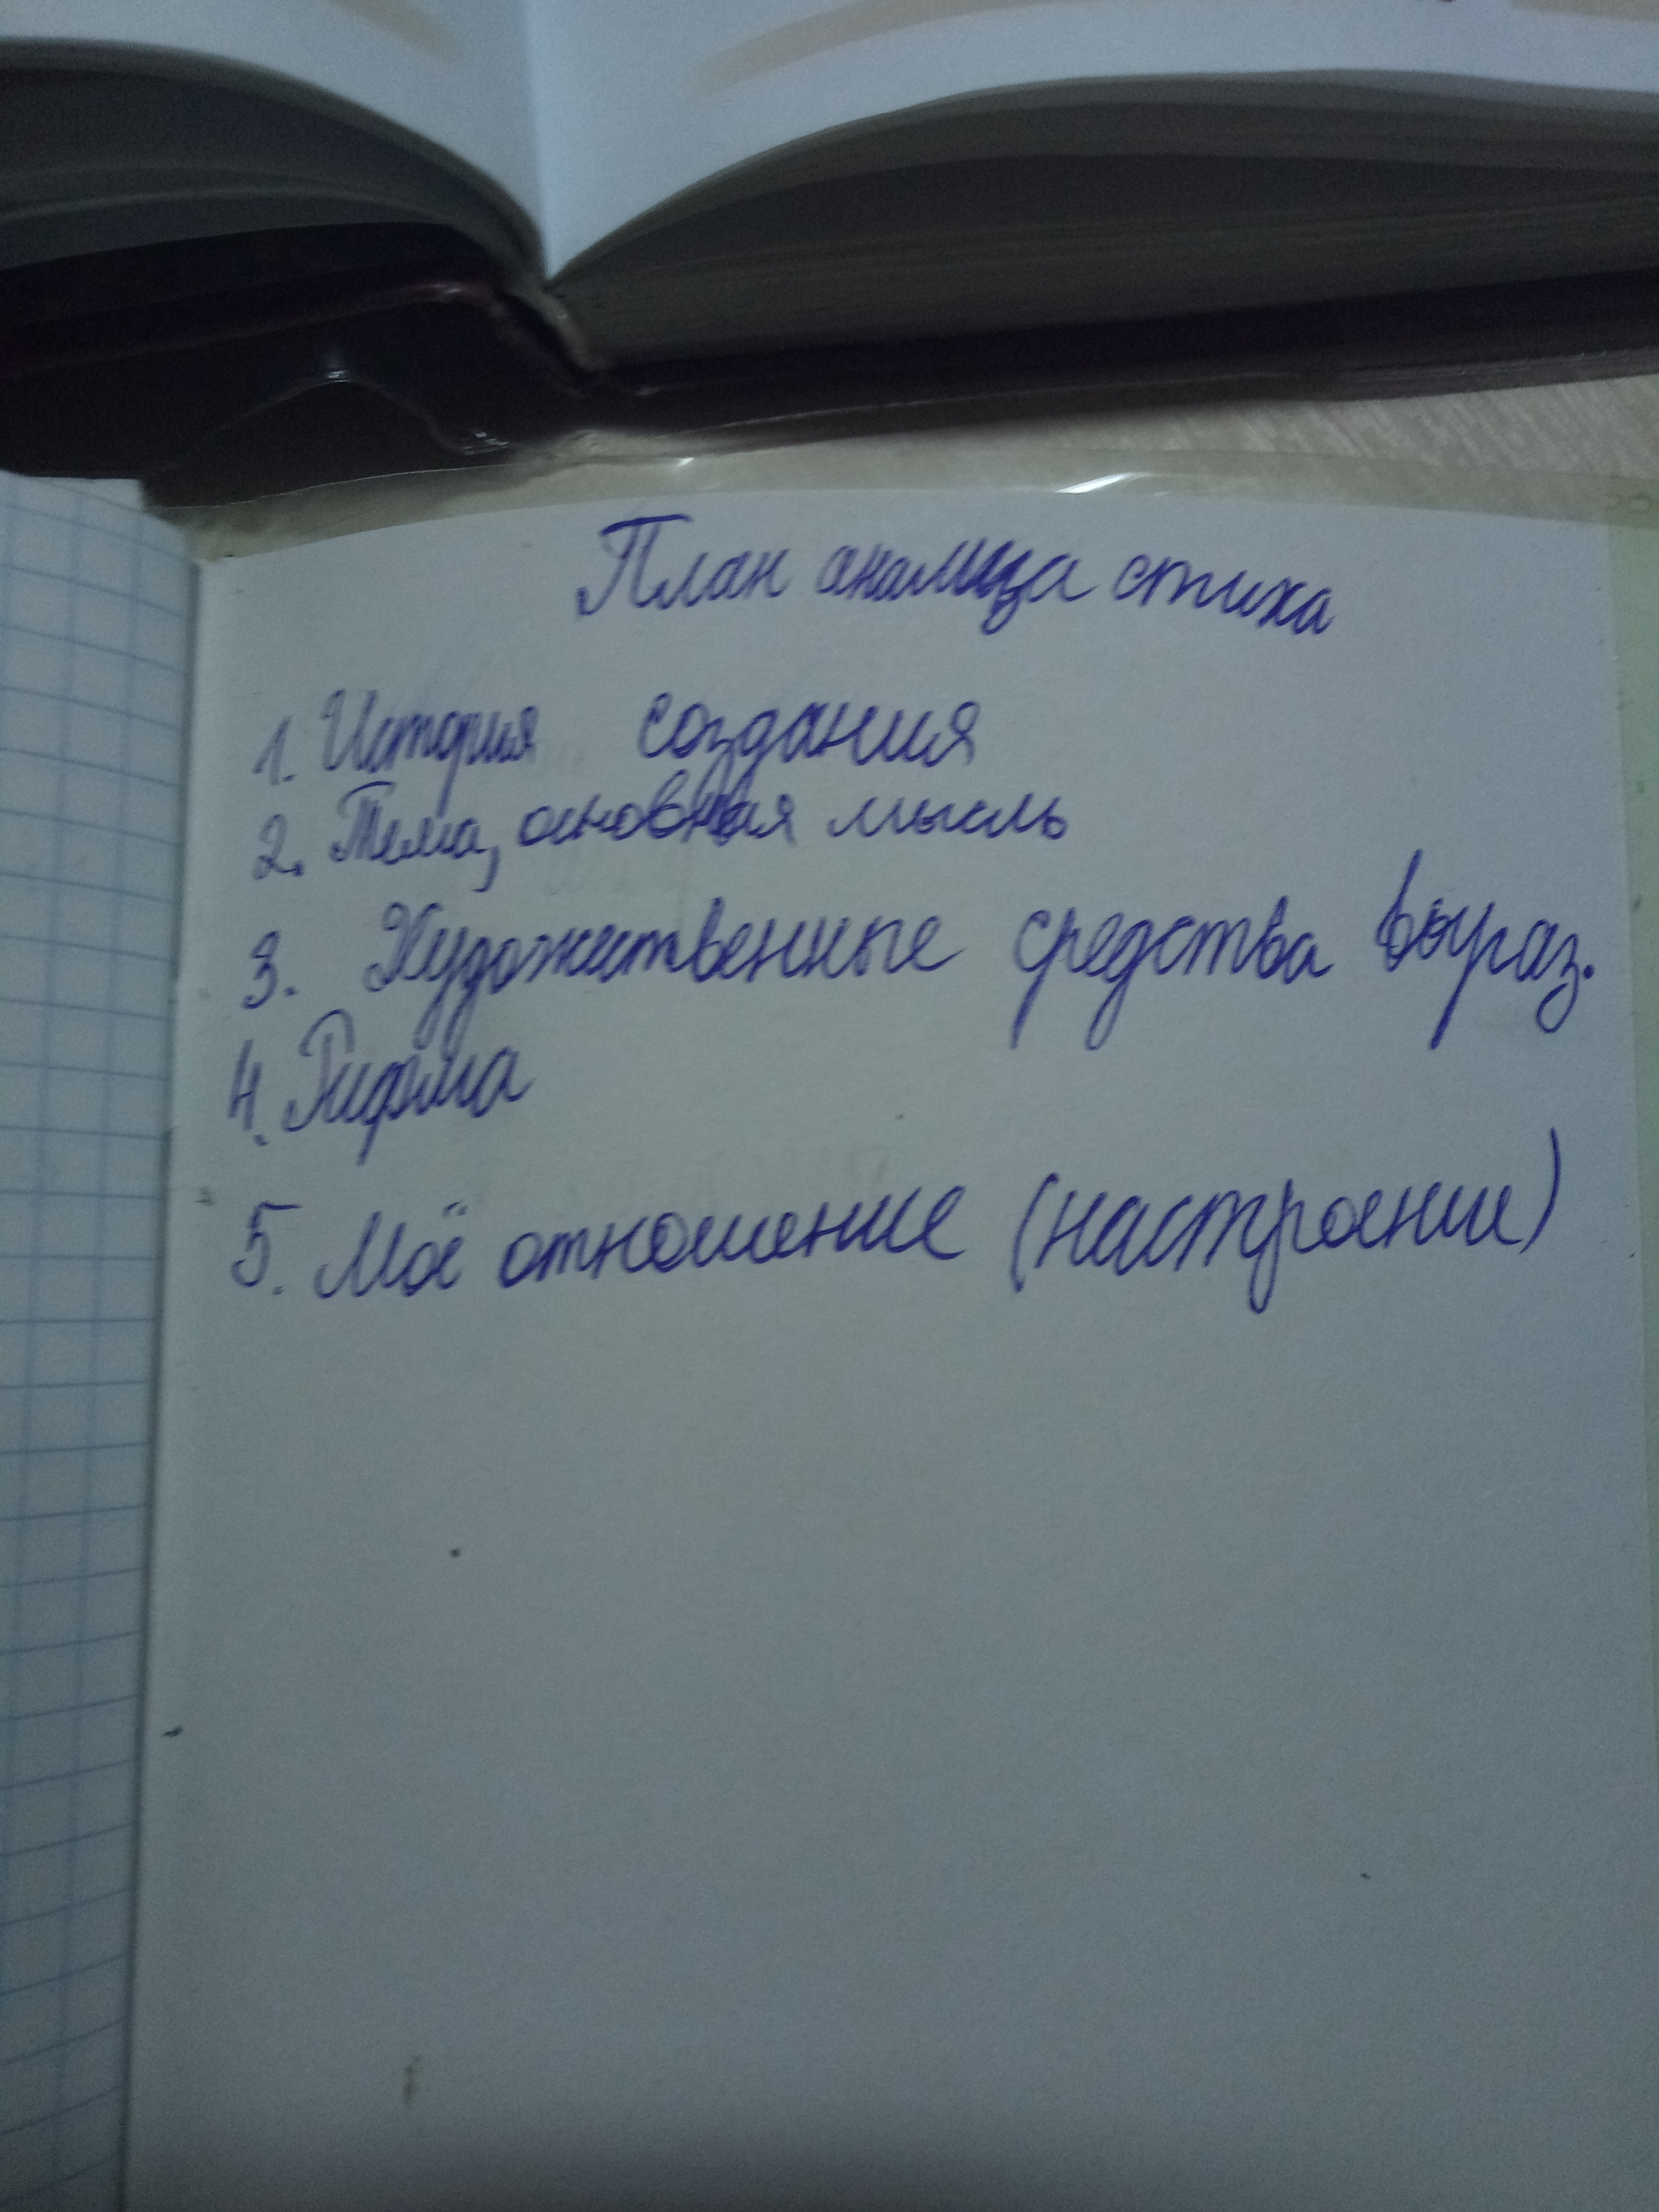 План анализа стиха
1. История создания
2. Тема, основная мысль
3. Художественные средства выраз.
4. Рифма
5. Моё отношение (настроение)